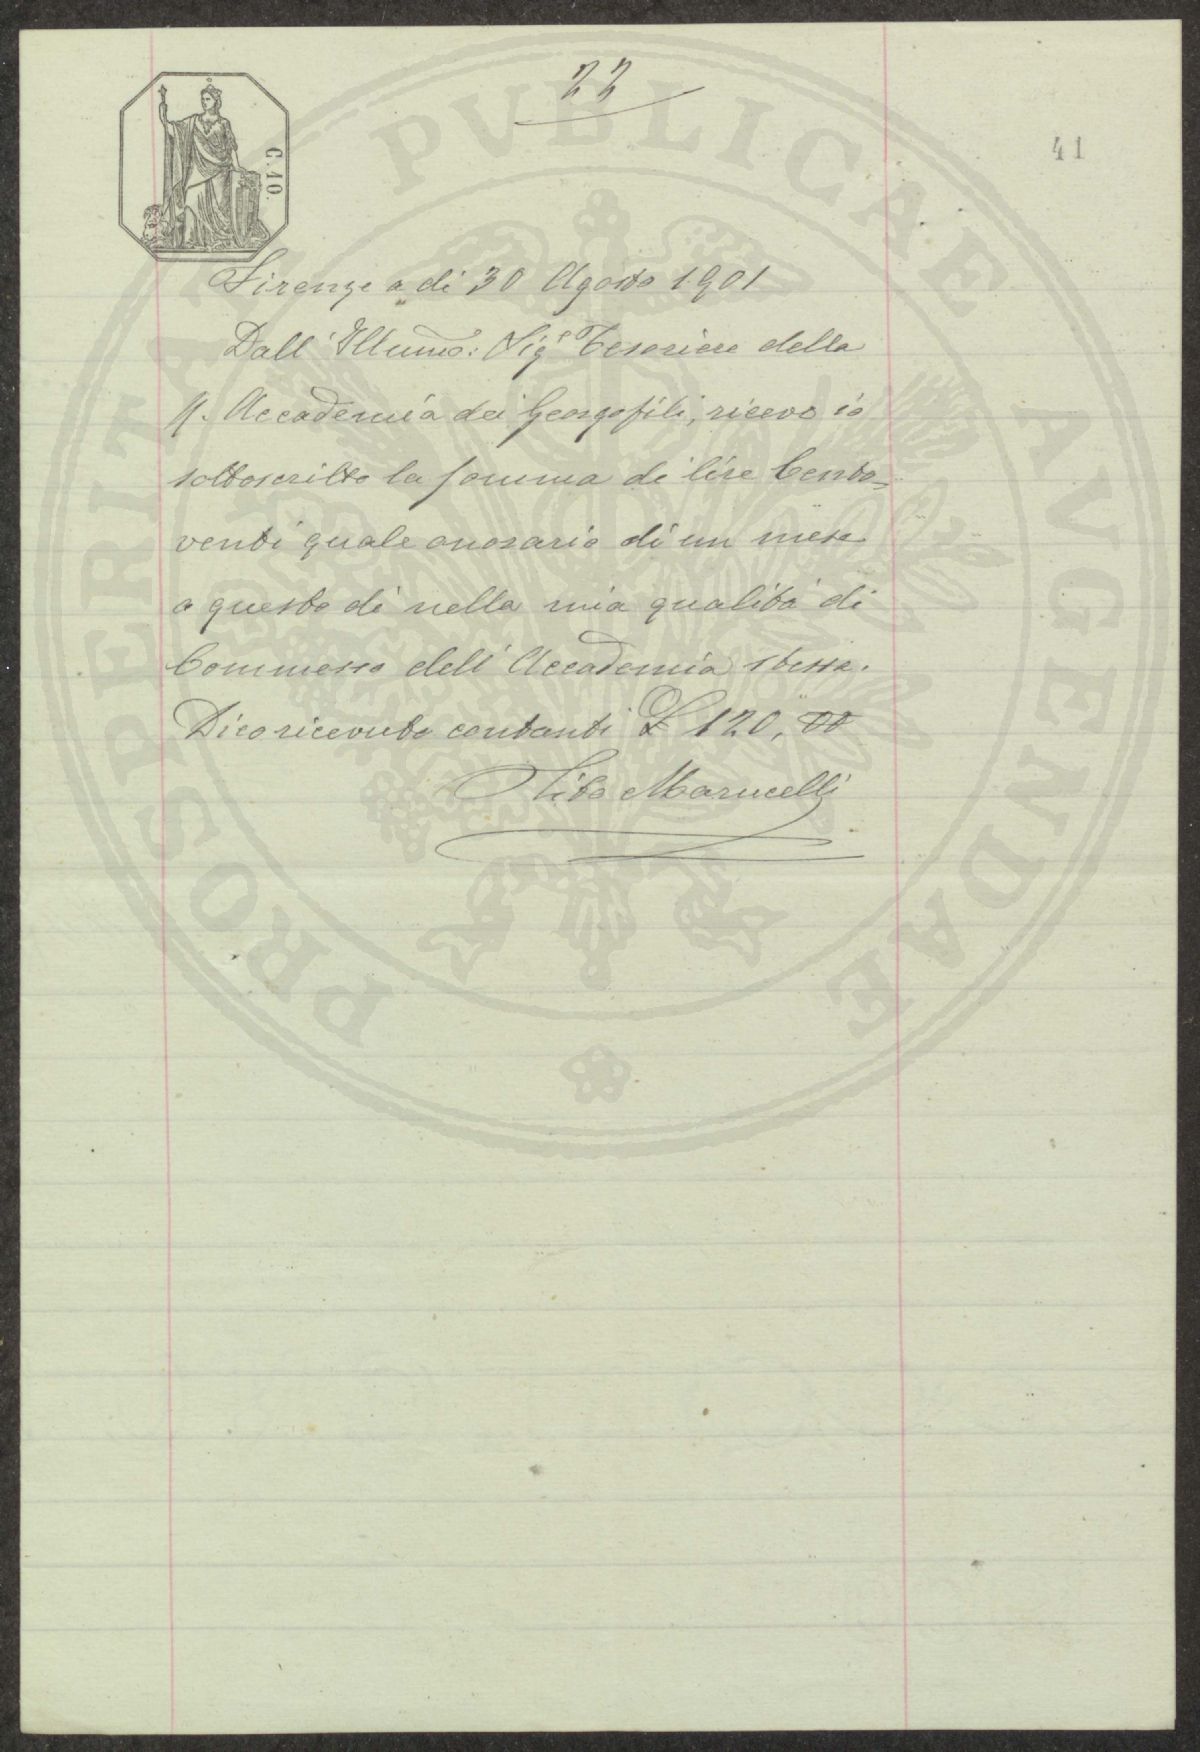 22
41
C. 10.
Firenze a di 30 Agosto 1901
Dall' Illumo: Sigr Tesoriere della
R. Accademia dei Georgofili, ricevo io
sottoscritto la somma di lire Cento=
venti quale onorario di un mese
a questo dì nella mia qualità di
Commesso dell' Accademia stessa.
Dico ricevute contanti £ 120, 00
Tito Marucelli
PROSPERITATI PVBLICAE AVGENDAE